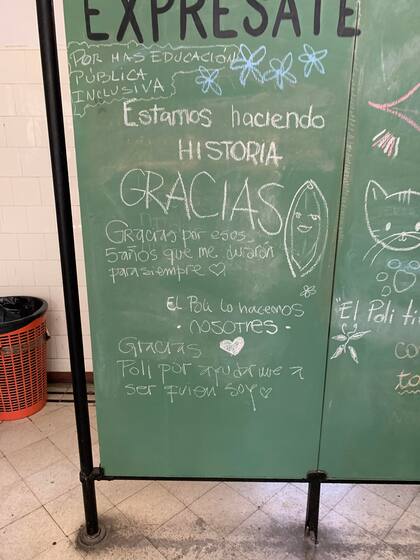 EXPRESATE
POR MAS EDUCACIÓN
PÚBLICA
INCLUSIVA
Estamos haciendo
HISTORIA
GRACIAS
Gracias por esos
5 años que me durarán
para siempre
EL Poli lo hacemos
· nosotres ·
Gracias
Poli por ayudarme a
ser quien soy
"El Poli ti
co
ta